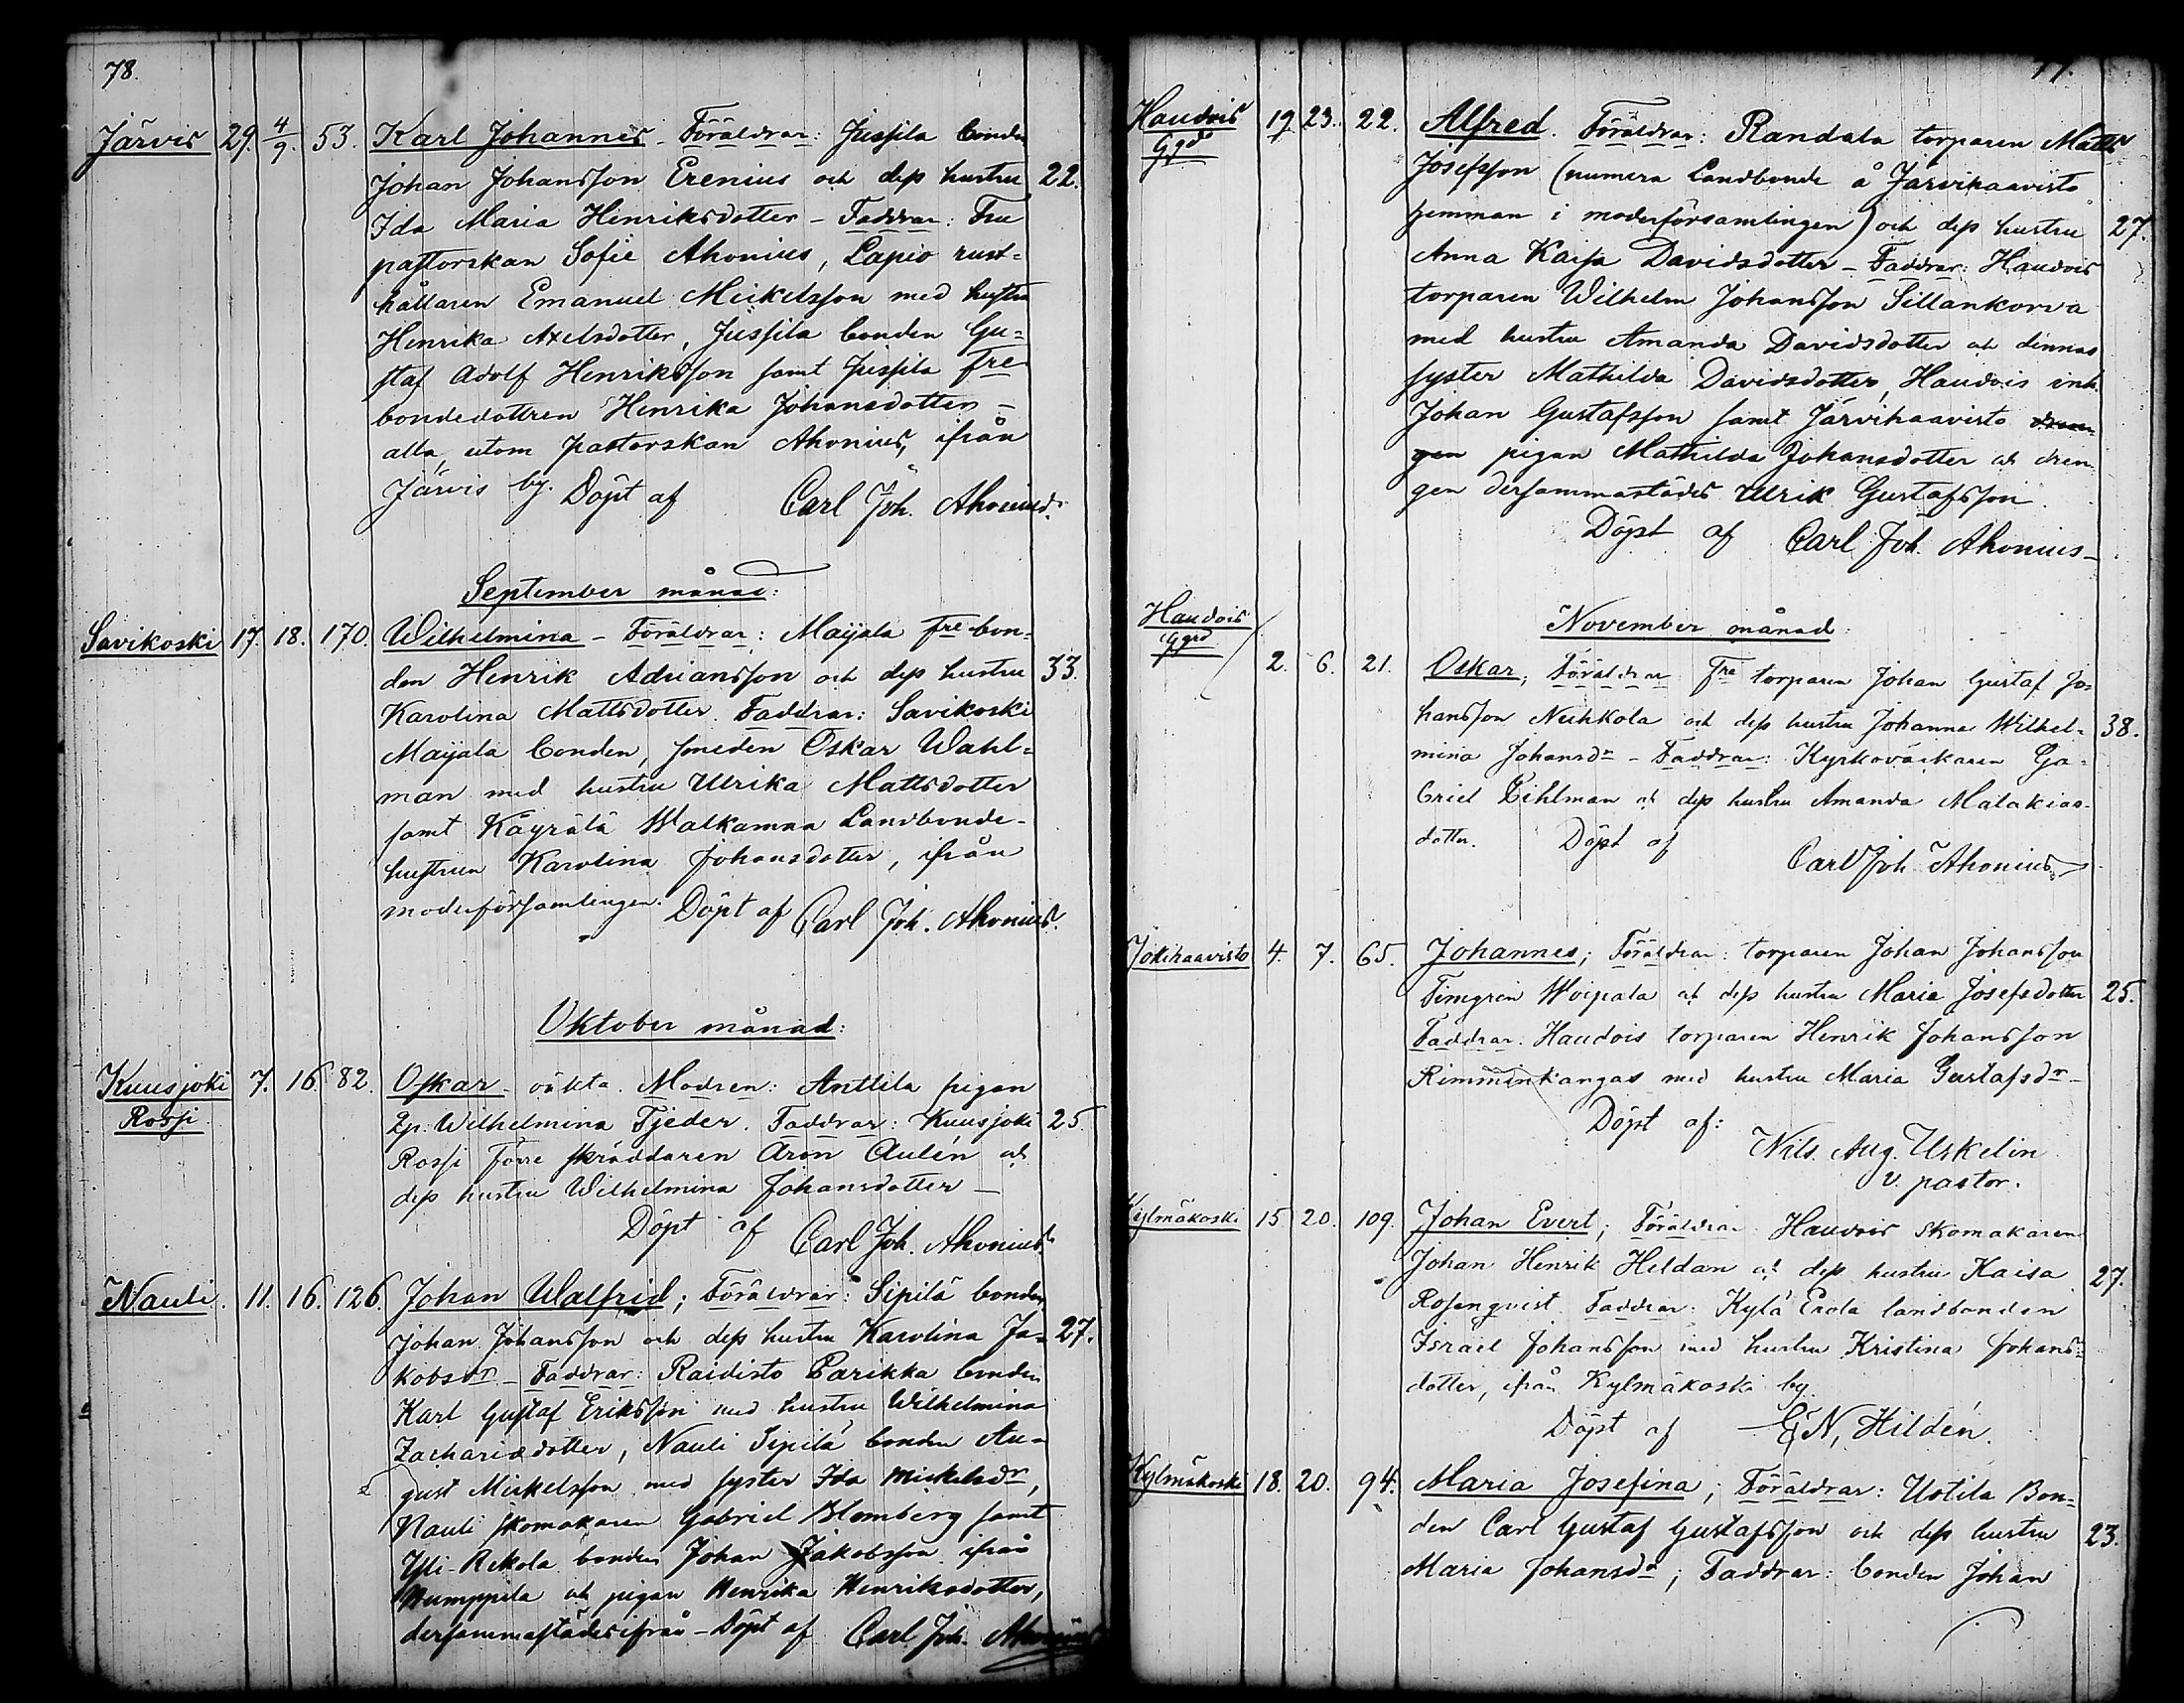 78.
Järvis 29. 4/9. 53. Karl Johannes. Föräldrar: Jussila bonden
Johan Johansson Erenius och dess hustru 22.
Ida Maria Henriksdotter – Faddrar: Fru
pastorskan Sofie Ahonius, Lapio rust-
hållaren Emanuel Mickelsson med hustru
Henrika Axelsdotter, Jussila bonden Gu-
staf Adolf Henriksson samt Jussila fre
bondedottren Henrika Johansdotter –
alla, utom pastorskan Ahonius, ifrån
Järvis by. Döpt af Carl Joh. Ahonius.
September månad:
Savikoski 17. 18. 170. Wilhelmina – Föräldrar: Maijala fre bon-
den Henrik Adriansson och dess hustru 33.
Karolina Mattsdotter. Faddrar: Savikoski
Maijala bonden, smeden Oskar Wahl-
man med hustru Ulrika Mattsdotter
samt Käyrälä Walkamaa Landbonde-
hustrun Karolina Johansdotter, ifrån
moderförsamlingen. Döpt af Carl Joh. Ahonius.
Oktober månad:
Kuusjoki 7. 16. 82. Oskar – oäkta. Modren: Anttila pigan
Rossi. Lp. Wilhelmina Tjeder. Faddrar: Kuusjoki 25.
Rossi förre skräddaren Aron Aulén och
dess hustru Wilhelmina Johansdotter –
Döpt af Carl Joh. Ahonius.
Nauli. 11. 16. 126. Johan Walfrid; Föräldrar: Sipilä bonden
Johan Johansson och dess hustru Karolina Ja- 27.
kobsdr – Faddrar: Raidisto Parikka bonden
Karl Gustaf Eriksson med hustru Wilhelmina
Zachariædotter, Nauli Sipilä bonden Au-
gust Mickelsson med syster Ida Mickelsdr,
Nauli skomakaren Gabriel Blomberg samt
Yli-Rekola bonden Johan Jakobsson ifrån
Humppila och pigan Henrika Henriksdotter,
dersammastädesifrån – Döpt af Carl Joh. Ahonius
Haudois 19 23. 22. Alfred. Föräldrar: Randala torparen Matts
Ggd Josefsson (numera Landbonde å Järvihaavisto
hemman i moderförsamlingen) och dess hustru 27.
Anna Kaisa Davidsdotter – Faddrar: Haudois
torparen Wilhelm Johansson Sillankorva
med hustru Amanda Davidsdotter och dennas
syster Mathilda Davidsdotter, Haudois inh.
Johan Gustafsson samt Järvihaavisto dren-
gen pigan Mathilda Johansdotter och dren-
gen dersammastädes Ulrik Gustafsson.
Döpt af Carl Joh. Ahonius –
November månad:
Haudois
Ggrd 2. 6. 21. Oskar; Föräldrar fre torparen Johan Gustaf Jo-
hansson Nuhkola och dess hustru Johanna Wilhel- 38.
mina Johansdr – Faddrar: Kyrkoväktaren Ga-
briel Pihlman och dess hustru Amanda Malakias-
dotter. Döpt af Carl Joh Ahonius
Jokihaavisto 4. 7. 65. Johannes; Föräldrar: torparen Johan Johansson
Timgrén Woipala och dess hustru Maria Josefsdotter 25.
Faddrar. Haudois torparen Henrik Johansson
Rimminkangas med hustru Maria Gustafsdr –
Döpt af:
Nils Aug. Uskelin
v. pastor.
Kylmäkoski 15 20. 109. Johan Evert; Föräldrar Haudois skomakaren
Johan Henrik Heldan och dess hustru Kaisa 27.
Rosenqvist. Faddrar: Kylä Erola landbonden
Israel Johansson med hustru Kristina Johans-
dotter, ifrån Kylmäkoski by.
Döpt af G. N. Hildén.
Kylmäkoski 18. 20. 94. Maria Josefina; Föräldrar: Uotila Bon-
den Carl Gustaf Gustafsson och dess hustru 23.
Maria Johansdr; Faddrar: bonden Johan